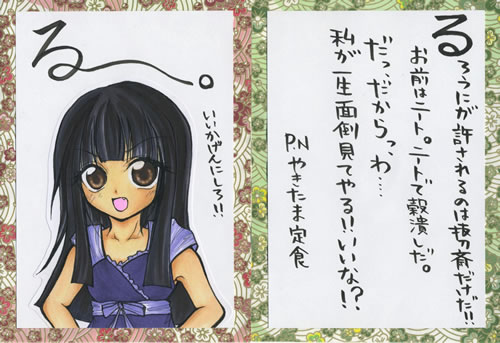 る〜。
いいかげんにしろ!!
るろうにが許されるのは抜刀斎だけだ!!
お前はニート。ニートで穀潰しだ。
だっ、だからっ、わ…
私が一生面倒見てやる!!いいな!?
PNやきたま定食